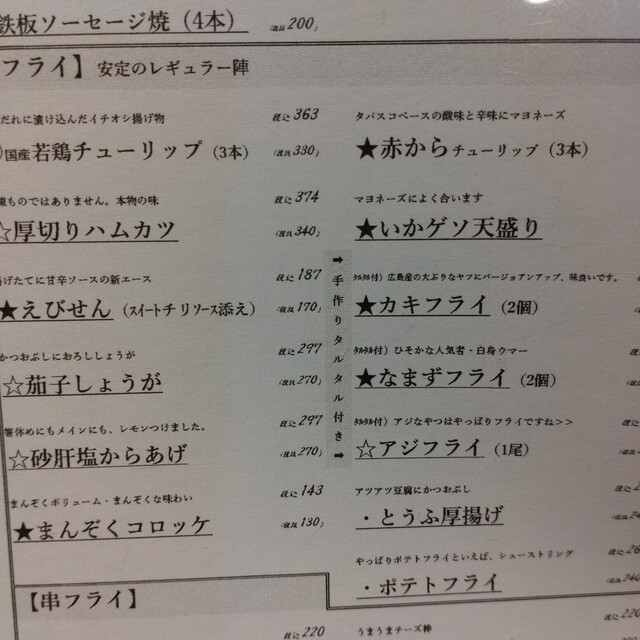 鉄板ソーセージ焼（4本） (税抜 200)
フライ】 安定のレギュラー陣
だれに漬け込んだイチオシ揚げ物 税込 363
国産若鶏チューリップ（3本） (税抜 330)
ものではありません、本物の味 税込 374
☆厚切りハムカツ (税抜 340)
げたてに甘辛ソースの新エース 税込 187
★えびせん（ｽｲｰﾄチリソース添え） (税抜 170)
かつおぶしにおろししょうが 税込 297
☆茄子しょうが (税抜 270)
箸休めにもメインにも、レモンつけました。 税込 297
☆砂肝塩からあげ (税抜 270)
まんぞくボリューム・まんぞくな味わい 税込 143
★まんぞくコロッケ (税抜 130)
【串フライ】
税込 220
➡手作りタルタル付き➡
タバスコベースの酸味と辛味にマヨネーズ
★赤からチューリップ（3本）
マヨネーズによく合います
★いかゲソ天盛り
ﾀﾙﾀﾙ付）広島産の大ぶりなヤツにバージョアンアップ、味良いです。
★カキフライ（2個）
ﾀﾙﾀﾙ付）ひそかな人気者・白身ウマー
★なまずフライ（2個）
ﾀﾙﾀﾙ付）アジなやつはやっぱりフライですね>>
☆アジフライ（1尾）
アツアツ豆腐にかつおぶし
・とうふ厚揚げ
やっぱりポテトフライといえば、シューストリング
・ポテトフライ (税抜 240
うまうまチーズ棒 税込 220